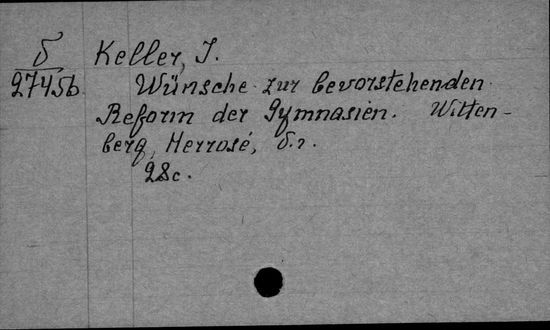 б
2745b
Keller, J.
Wünsche zur bevorstehenden
Reform der Gymnasien. Witten-
berg, Herrosé, б.г.
28с.